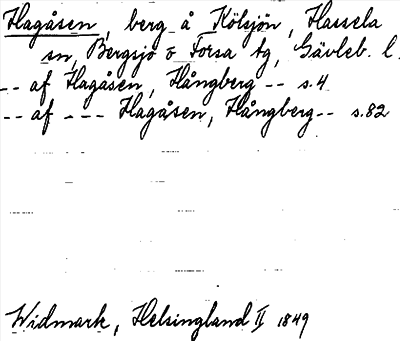 Hagåsen, berg å Kölsjön, Hassela
sn, Bergsjö o Forsa tg, Gävleb. l.
-- af Hagåsen, Hångberg -- s.4
-- af --- Hagåsen, Hångberg -- s.82
Widmark, Helsingland II 1849